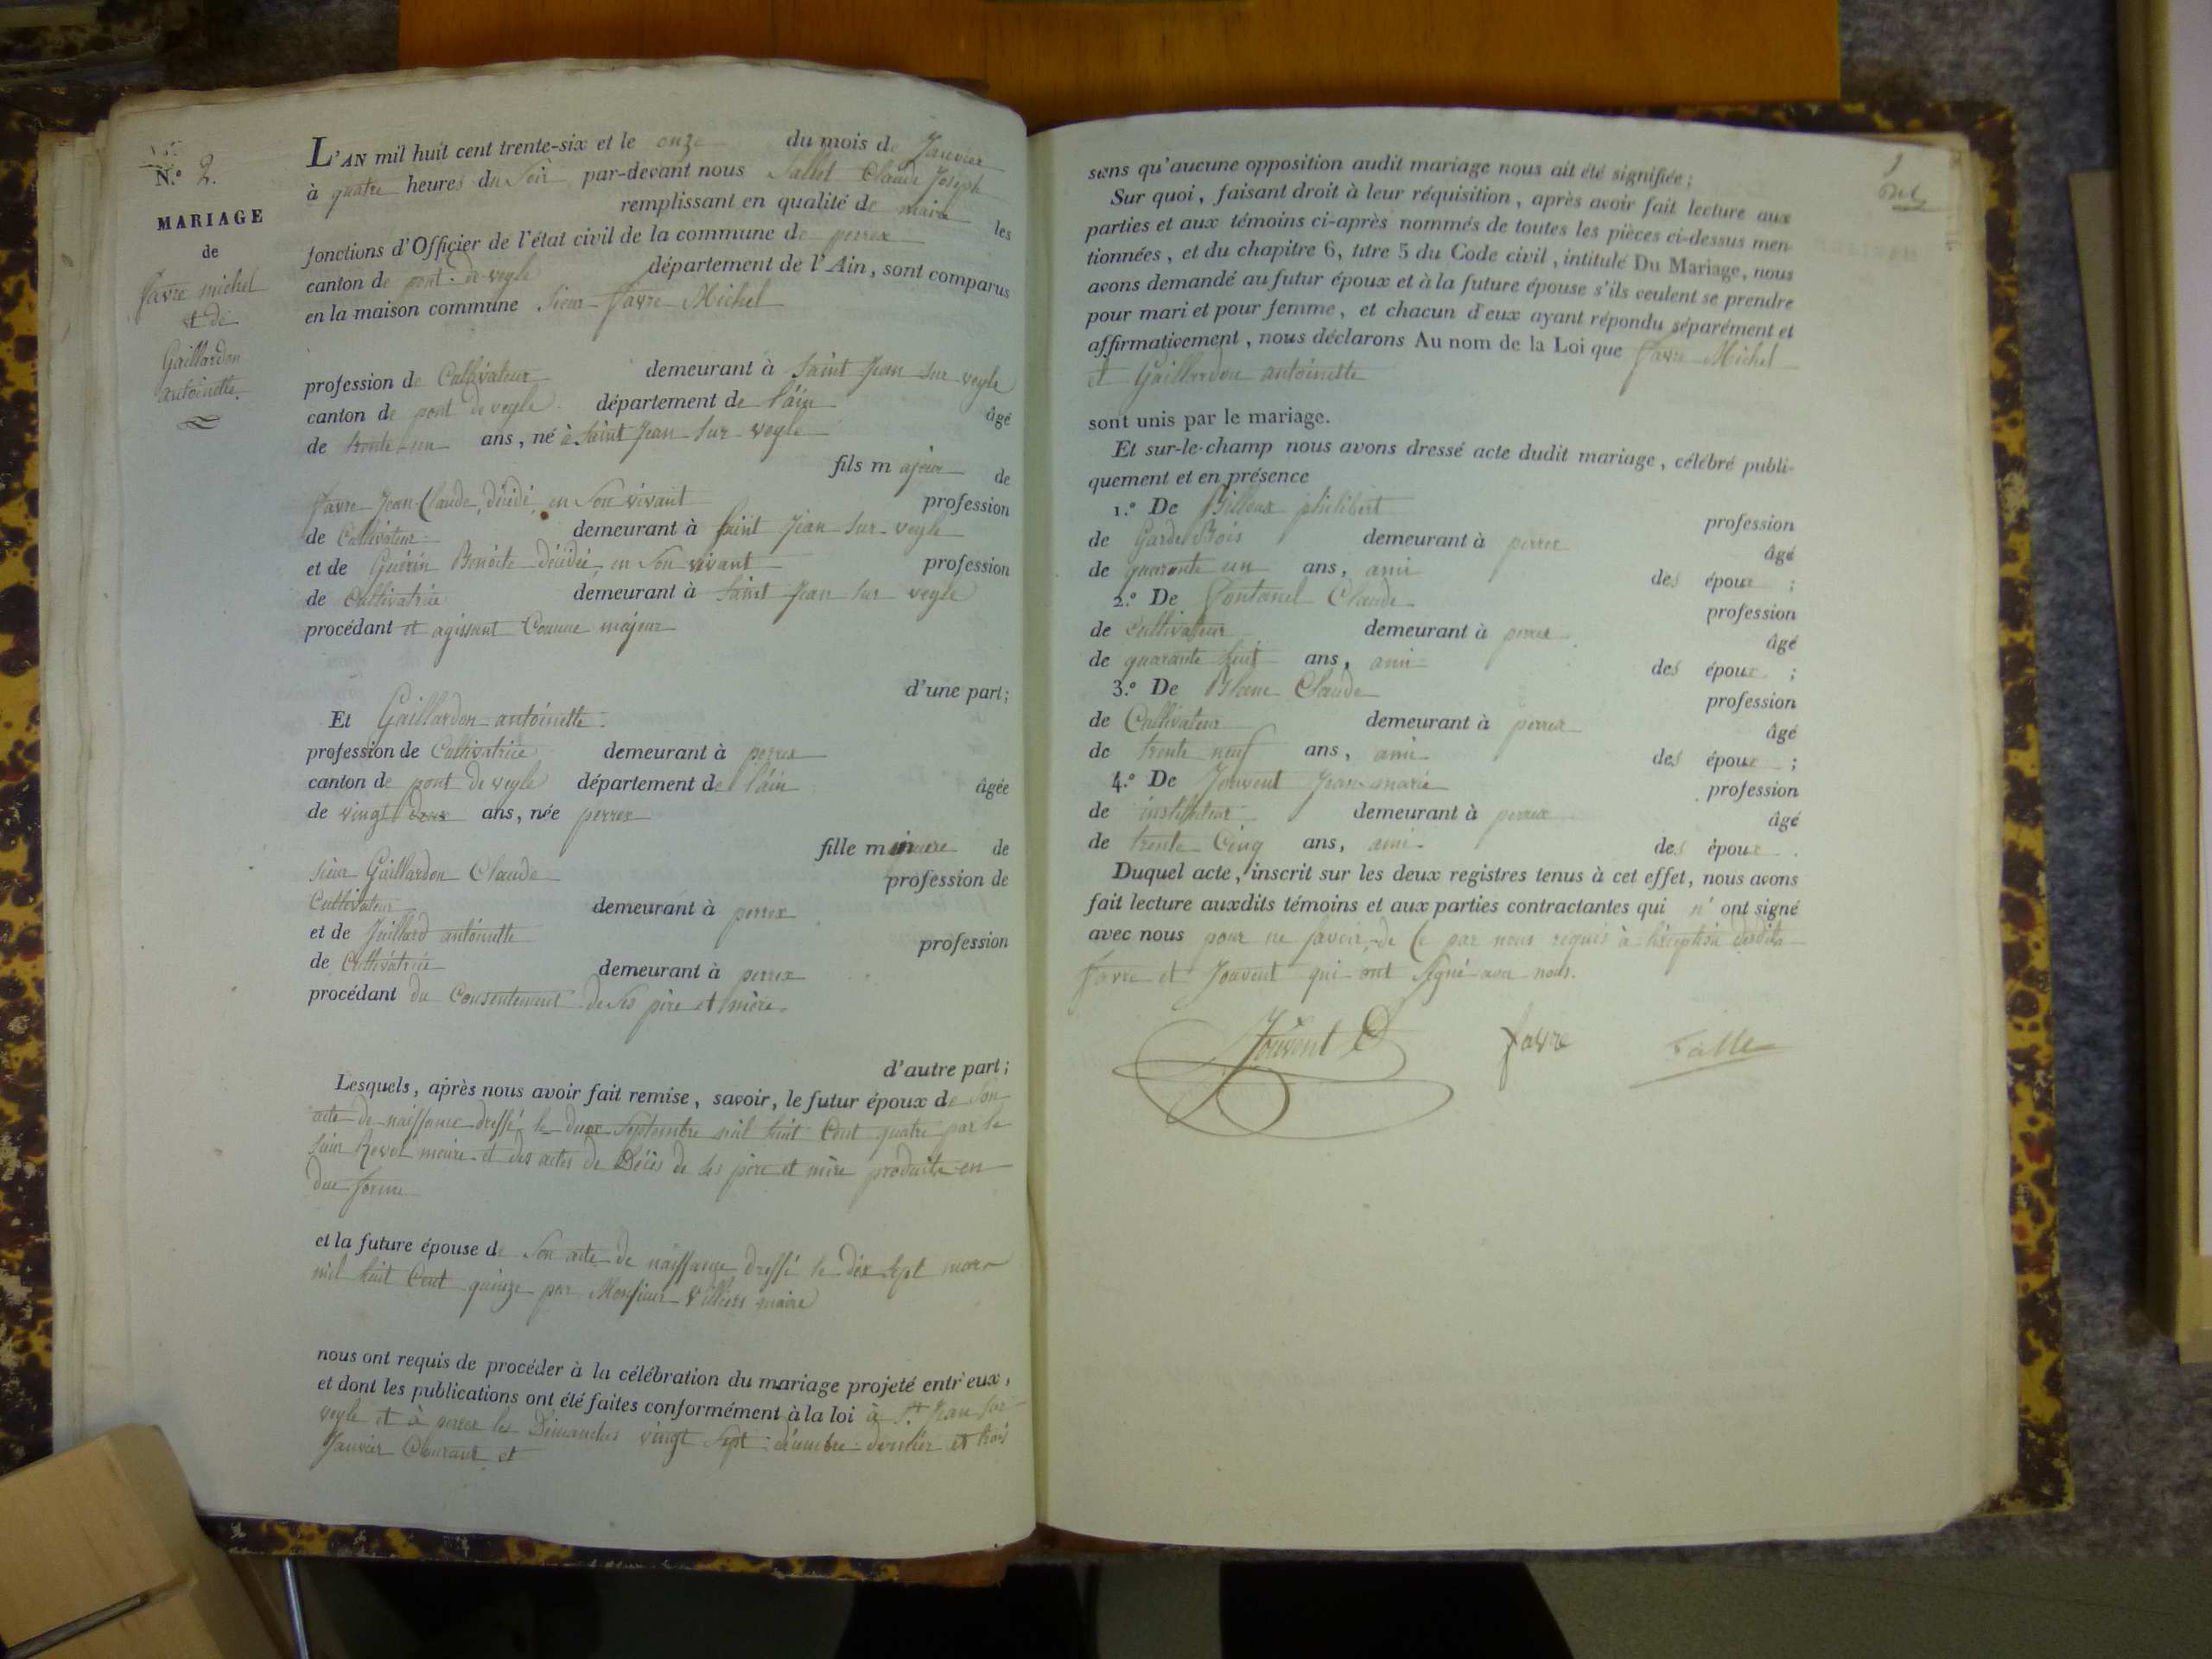 N.º 2.
MARIAGE
de
favre michel
et de
Gaillardon
antoinette.
L'AN mil huit cent trente-six et le onze du mois de Janvier
à quatre heures du Soir par-devant nous Sallet Claude Joseph
remplissant en qualité de maire les
fonctions d'Officier de l'état civil de la commune de perrex
canton de pont-de-veyle département de l'Ain, sont comparus
en la maison commune Sieur favre Michel
profession de Cultivateur demeurant à Saint Jean sur veyle
canton de pont de veyle département de l'ain âgé
de trente-un ans, né à Saint Jean sur veyle
fils majeur de
favre Jean-Claude, décédé, en Son vivant profession
de Cultivateur demeurant à Saint Jean sur veyle
et de Guérin Benoite décédée, en Son vivant profession
de Cultivatrice demeurant à Saint Jean sur veyle
procédant et agissant Comme majeur
d'une part;
Et Gaillardon antoinette.
profession de Cultivatrice demeurant à perrex
canton de pont de veyle département de l'ain âgée
de vingt deux ans, née perrex
fille mineure de
sieur Gaillardon Claude profession de
Cultivateur demeurant à perrex
et de Juillard antoinette profession
de Cultivatrice demeurant à perrex
procédant du Consentement de ses père et mère.
d'autre part;
Lesquels, après nous avoir fait remise, savoir, le futur époux de Son
acte de naissance dressé le deux Septembre mil huit Cent quatre par le
Sieur Revel maire et des actes de Décès de ses père et mère produits en
due forme
et la future épouse de Son acte de naissance dressé le dix sept mars
mil huit Cent quinze par Monsieur Villiers maire
nous ont requis de procéder à la célébration du mariage projeté entr'eux,
et dont les publications ont été faites conformément à la loi à St. Jean sur
veyle et à perrex les Dimanches vingt Sept décembre dernier et trois
Janvier Courant et
sans qu'aucune opposition audit mariage nous ait été signifiée;
Sur quoi, faisant droit à leur réquisition, après avoir fait lecture aux
parties et aux témoins ci-après nommés de toutes les pièces ci-dessus men-
tionnées, et du chapitre 6, titre 5 du Code civil, intitulé Du Mariage, nous
avons demandé au futur époux et à la future épouse s'ils veulent se prendre
pour mari et pour femme, et chacun d'eux ayant répondu séparément et
affirmativement, nous déclarons Au nom de la Loi que favre Michel
et Gaillardon antoinette
sont unis par le mariage.
Et sur-le-champ nous avons dressé acte dudit mariage, célébré publi-
quement et en présence
1.º De Billoux philibert profession
de Garde Bois demeurant à perrex âgé
de quarante un ans, ami des époux;
2.º De fontanel Claude profession
de Cultivateur demeurant à perrex âgé
de quarante huit ans, ami des époux;
3.º De Blanc Claude profession
de Cultivateur demeurant à perrex âgé
de trente neuf ans, ami des époux;
4.º De Jouvent Jean-marie profession
de instituteur demeurant à perrex âgé
de trente Cinq ans, ami des époux.
Duquel acte, inscrit sur les deux registres tenus à cet effet, nous avons
fait lecture auxdits témoins et aux parties contractantes qui n'ont signé
avec nous pour ne savoir, de Ce par nous requis à l'exception desdits
favre et Jouvent qui ont Signé avec nous.
Jouvent favre